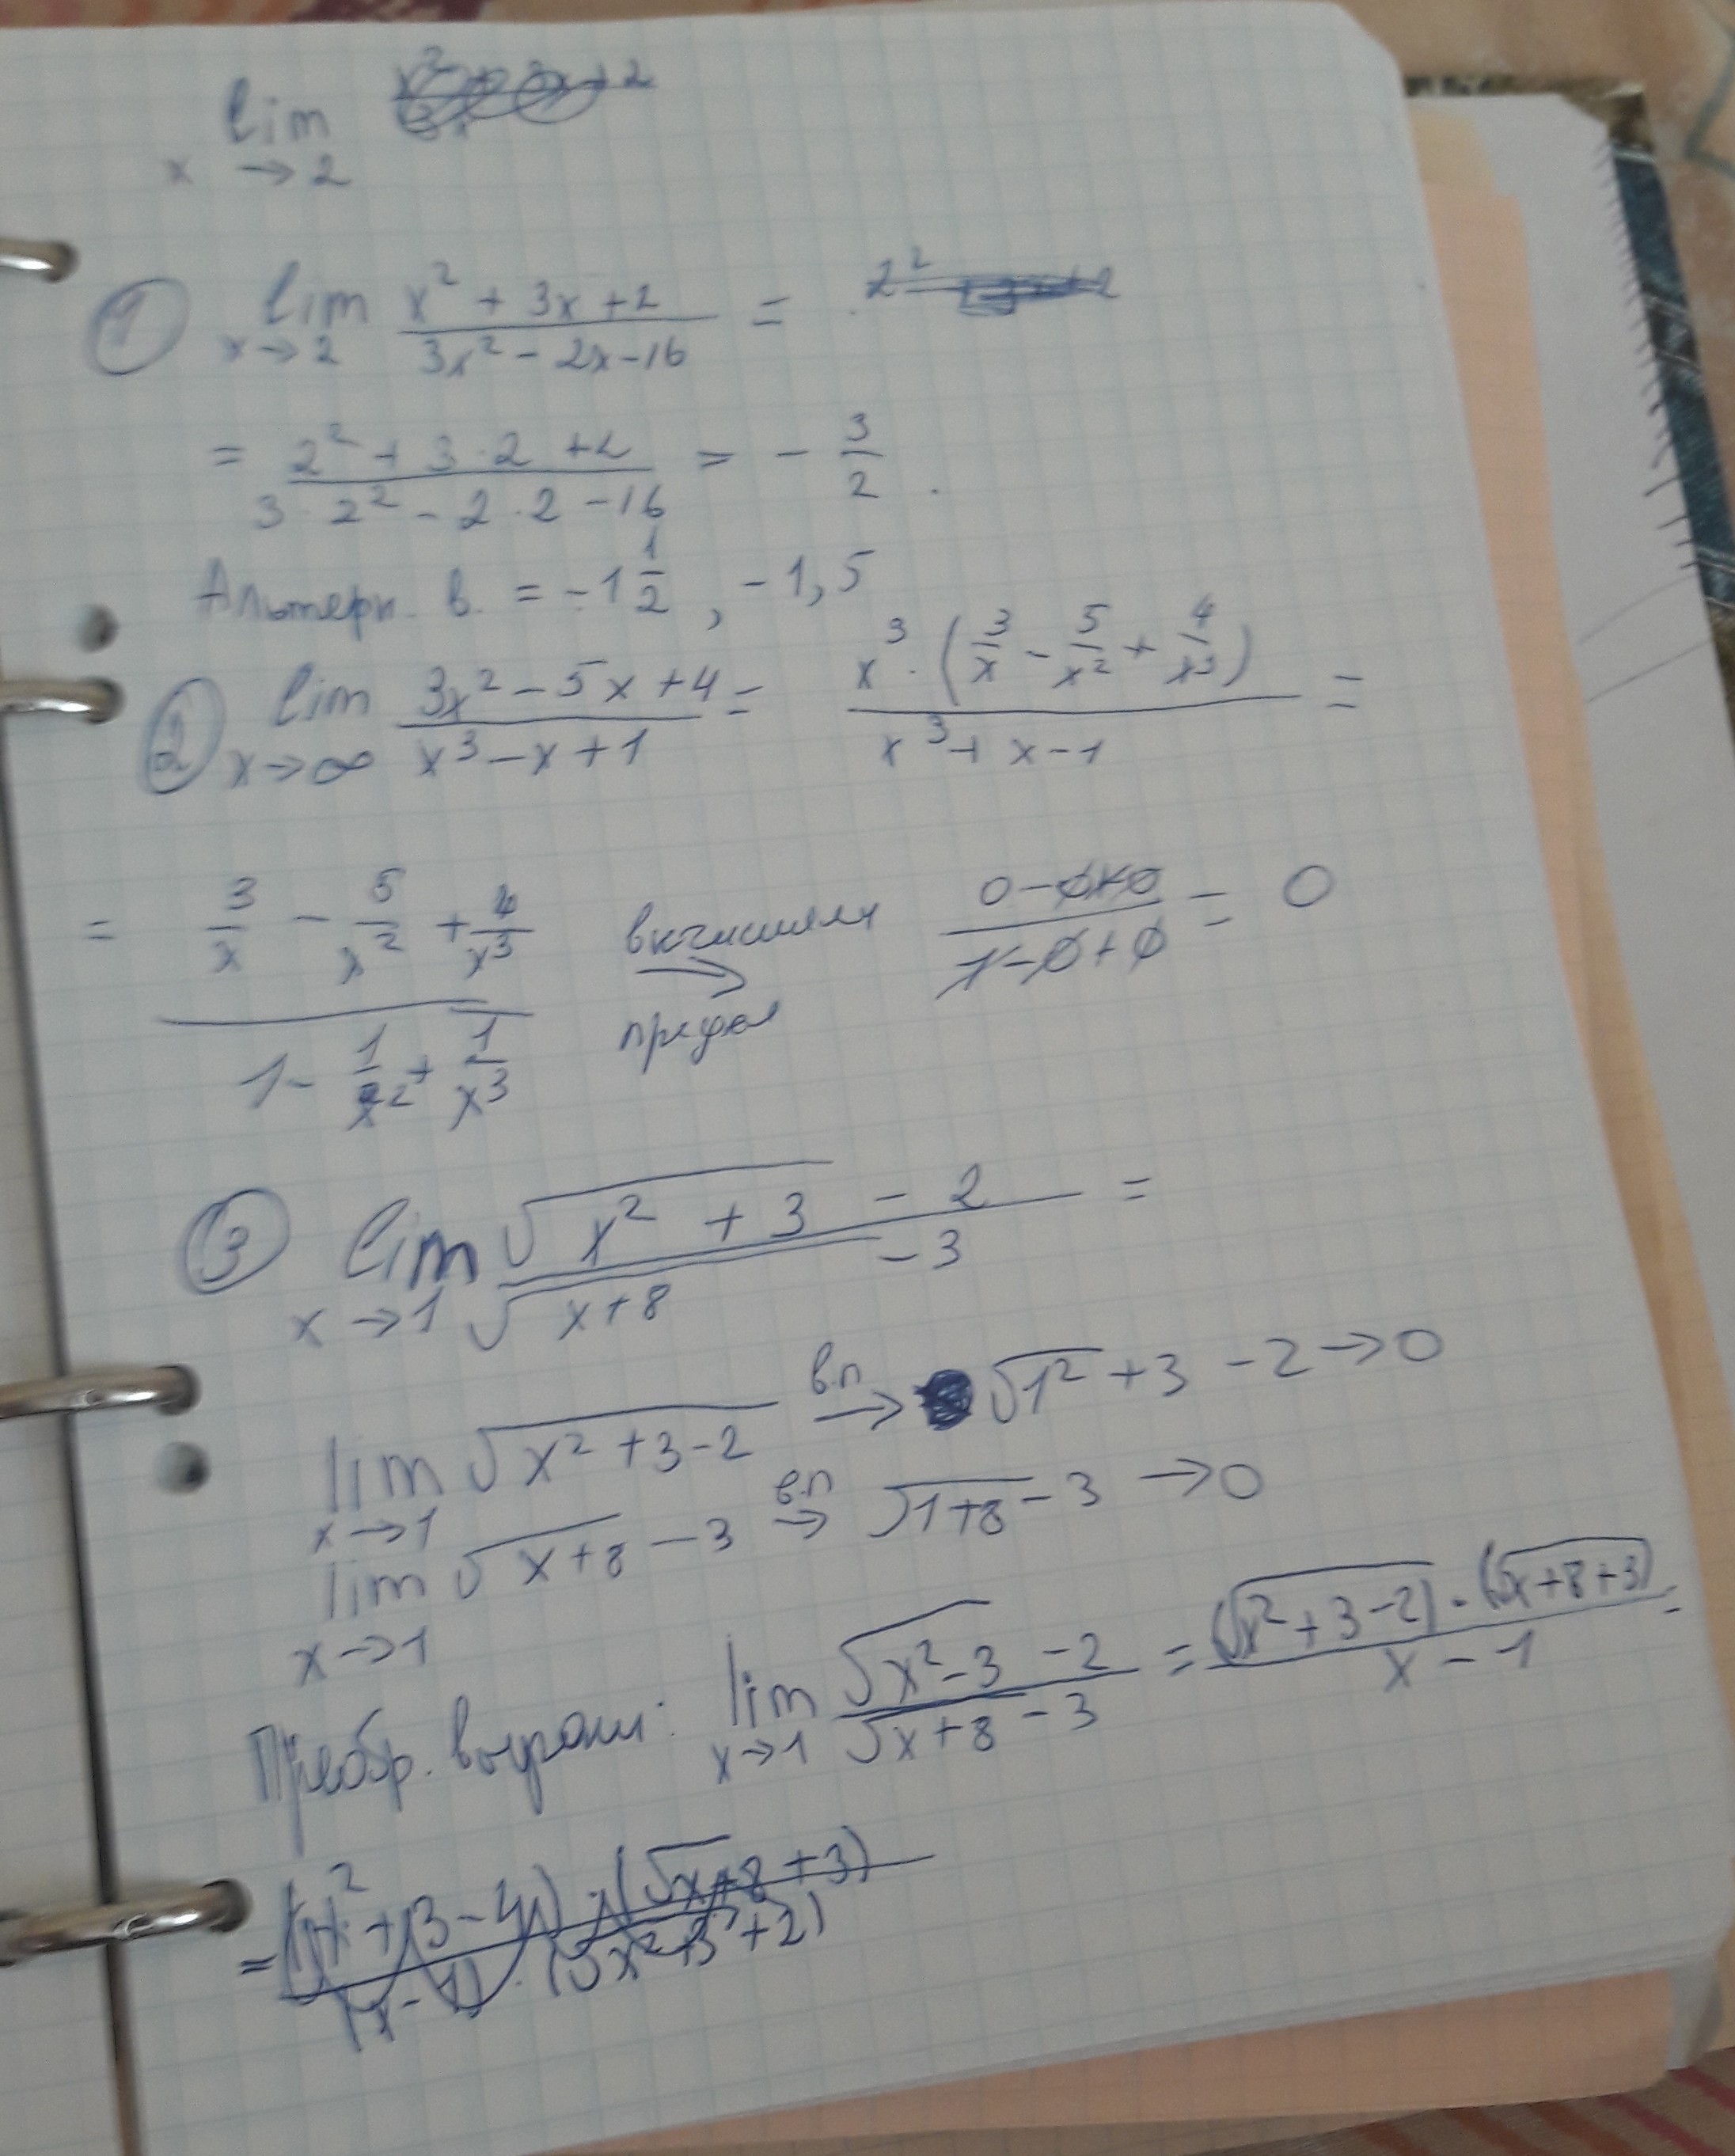 lim
x → 2
① lim x→2 (x² + 3x + 2)/(3x² − 2x − 16) =
= (2² + 3·2 + 2)/(3·2² − 2·2 − 16) = − 3/2 .
Альтерн. в. = −1 1/2 , −1,5
② lim x→∞ (3x² − 5x + 4)/(x³ − x + 1) = (x³·(3/x − 5/x² + 4/x³))/(x³ + x − 1) =
= (3/x − 5/x² + 4/x³)/(1 − 1/x² + 1/x³) → предел (0 − 0 + 0)/(1 − 0 + 0) = 0
③ lim x→1 (√(x² + 3) − 2)/(√(x+8) − 3) =
lim x→1 √(x² + 3 − 2) в.п → √1² + 3 − 2 → 0
lim x→1 √(x+8) − 3 в.п → √(1+8) − 3 → 0
Преобр. выраж: lim x→1 (√(x² − 3) − 2)/(√(x+8) − 3) = ((√(x² + 3 − 2)) · (√(x+8+3)))/(x − 1) =